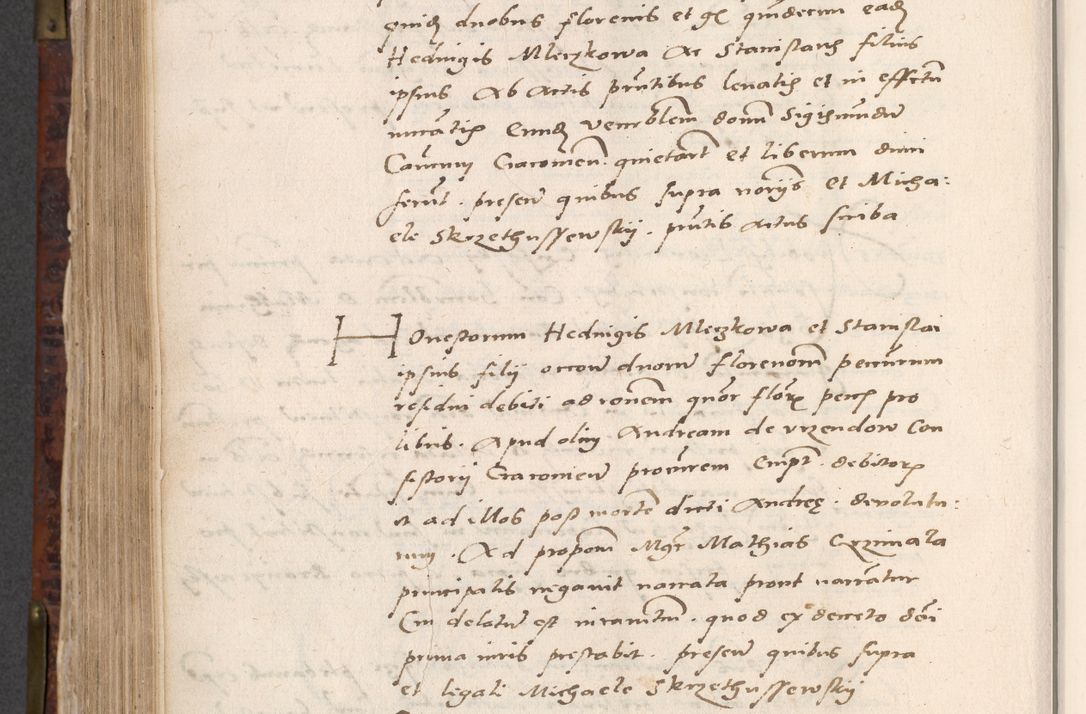 quidem duobus florenis et gr. quindecim eadem
Hedvigis Mleczkowa Ac Stanislaus filius
ipsius Ab Actis prntibus levatis et in effectu
Eundem Venerablem domm Sigismundu
Cracovien. quietart et liberum dimi
serut. presen quibus supra noriis et Micha:
ele Skrzethussewskij. prntis Actus scriba
Honestorum Hedvigis Mleczkowa et Stanislai
ipsius filij occoe duoru florenorm peccuniarum
residui debiti ad ronem quor flor pecc pro
libris. Apud olim Andream de Vrzendow Con
sistorij Cracovien procurem Empt. debitorp
et ad illos post morte dicti Andreę devolutu:
rum. Ad propom Mgr Mathias Crzimala
principalis negavit narrata prout narrantur
Cui delatu est iuramtu. quod ex decreto dni
prima iuris prestabit. presen quibus supra
et legali Michaele Skrzethussewskij